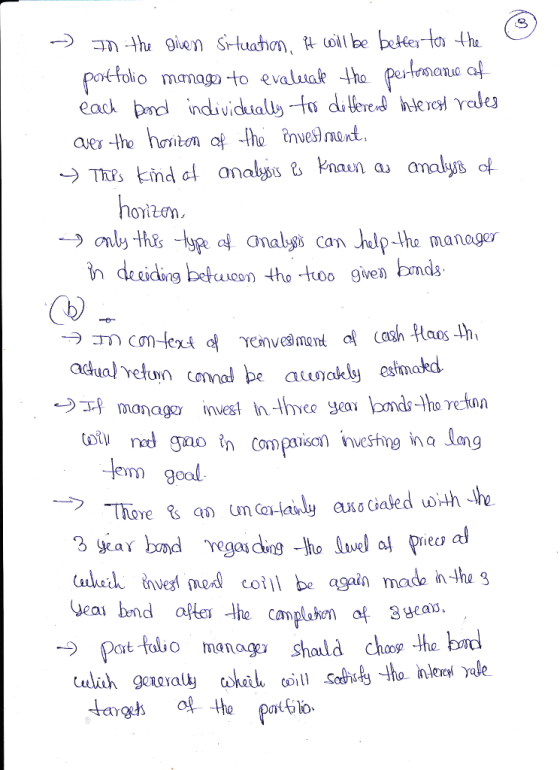 3
→ In the given situation, it will be better for the
portfolio manager to evaluate the performance of
each bond individually for different interest rates
over the horizon of the investment.
→ This kind of analysis is known as analysis of
horizon.
→ only this type of analysis can help the manager
in deciding between the two given bonds.
(b) –
→ In context of reinvesment of cash flows th
actual return connot be accurately estimated
→ If manager invest in three year bonds the return
will not grow in comparison investing in a long
term goal.
→ There is an uncertainly associated with the
3 year bond regarding the level of price at
which investment will be again made in the 3
year bond after the completion of 3 years.
→ portfolio manager should choose the bond
which generally which will satisfy the interest rate
targets of the portfilio.